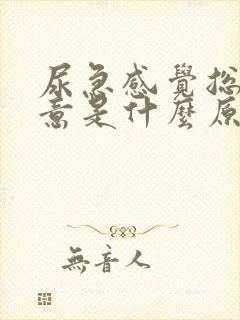 尿急感覺總
意是什麼原
無音人